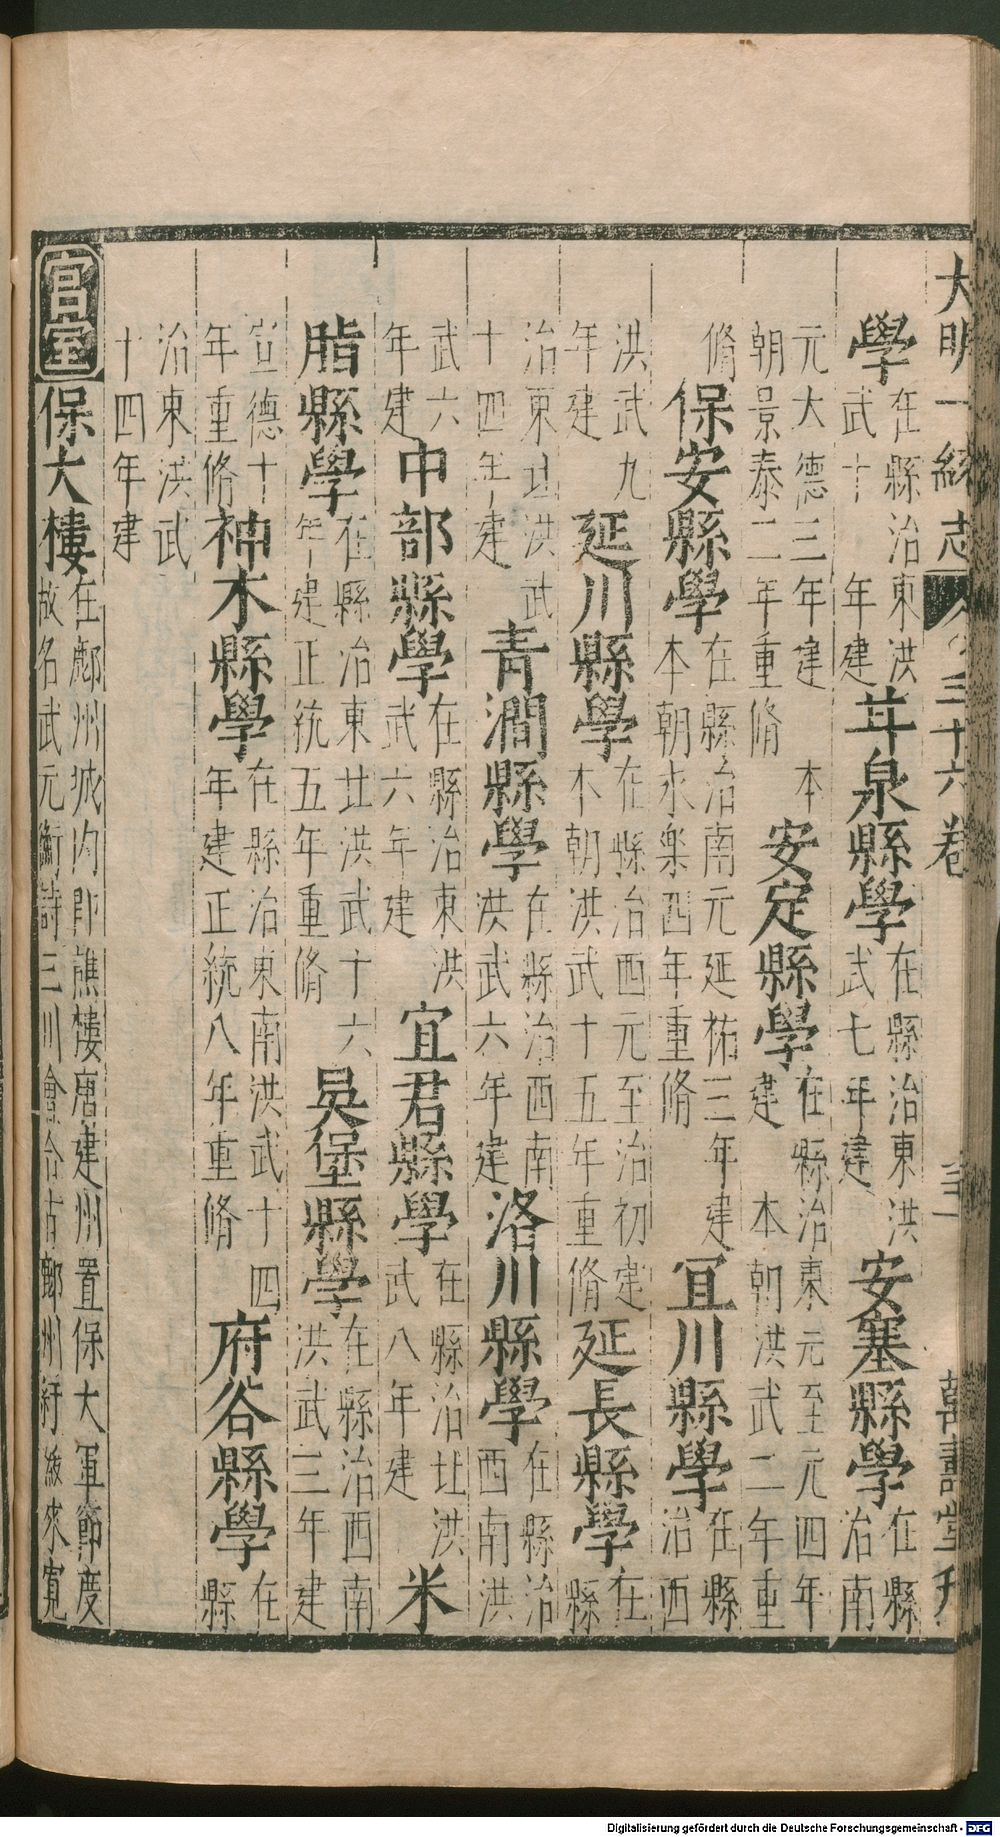 大明一統志 之三十六卷 三一 萬壽堂刊
學 在縣治東洪武十 年建 甘泉縣學 在縣治東洪武七年建 安塞縣學 在縣治南
元大德三年建 本朝景泰二年重脩 安定縣學 在縣治東元至元四年建 本朝洪武二年重
脩 保安縣學 在縣治南元延祐三年建 本朝永樂四年重脩 宜川縣學 在縣治西
洪武九年建 延川縣學 在縣治西元至治初建 本朝洪武十五年重脩 延長縣學 在縣
治東北洪武十四年建 青澗縣學 在縣治西南洪武六年建 洛川縣學 在縣治西南洪
武六年建 中部縣學 在縣治東洪武六年建 宜君縣學 在縣治北洪武八年建 米
脂縣學 在縣治東北洪武十六年建正統五年重脩 吳堡縣學 在縣治西南洪武三年建
宣德十年重脩 神木縣學 在縣治東南洪武十四年建正統八年重脩 府谷縣學 在縣
治東洪武十四年建
宮室 保大樓 在鄜州城内即譙樓唐建州置保大軍節度故名武元衡詩三川會合古鄜州紆緩來寬
Digitalisierung gefördert durch die Deutsche Forschungsgemeinschaft - DFG